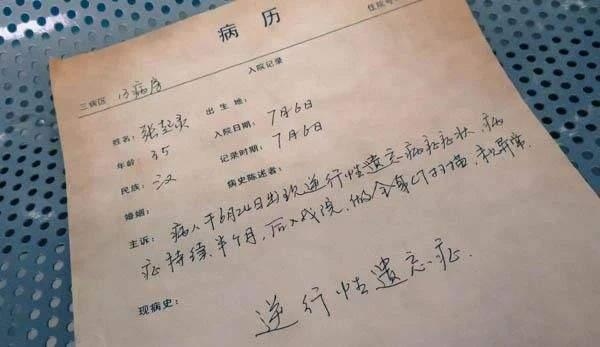 病历
住院号
入院记录
三病区 13病房
姓名：张起灵 出生地：
年龄 35 入院日期：7月6日
民族：汉 记录时期：7月6日
婚姻： 病史陈述者：
主诉：病人于6月24日出现逆行性遗忘病症症状，病
症持续半个月，后入我院，做全身CT扫描，未异常。
现病史：逆行性遗忘症